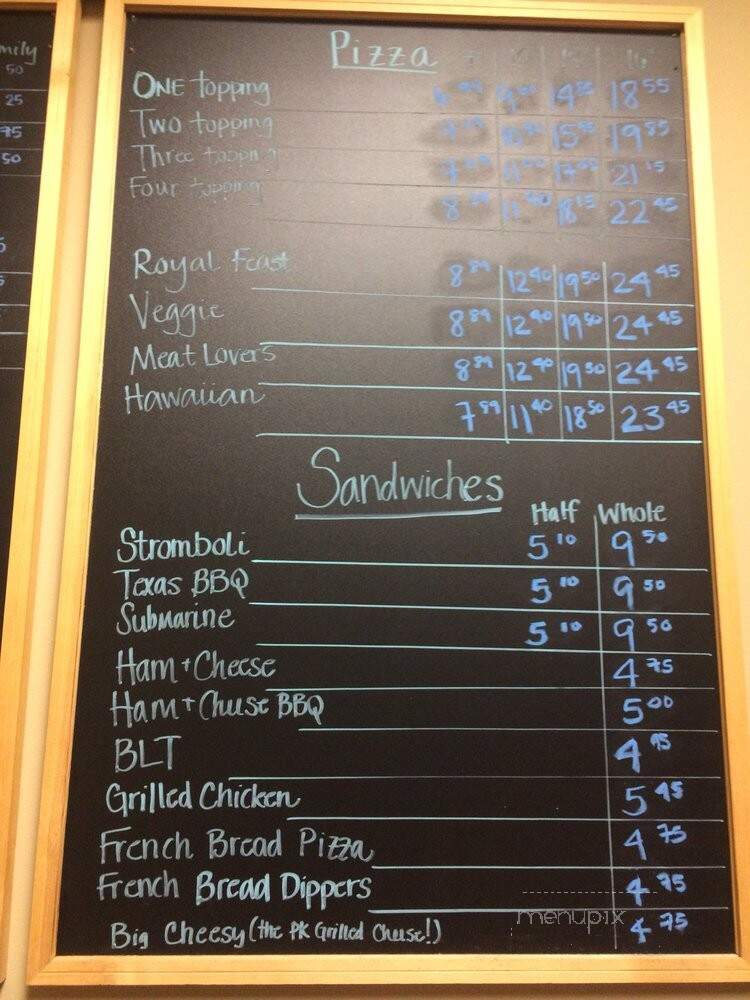 mily
50
25
75
50
Pizza
ONE topping 14 18 55
Two topping 15 19 85
Three topping 21 15
Four topping 8 11 40 18 15 22 45
Royal Feast 8 89 12 40 19 50 24 45
Veggie 8 89 12 40 19 50 24 45
Meat Lovers 8 89 12 40 19 50 24 45
Hawaiian 7 89 11 40 18 50 23 45
Sandwiches
Half Whole
Stromboli 5 10 9 50
Texas BBQ 5 10 9 50
Submarine 5 10 9 50
Ham + Cheese 4 75
Ham + Cheese BBQ 5 00
BLT 4 95
Grilled Chicken 5 45
French Bread Pizza 4 75
French Bread Dippers 4 75
Big Cheesy (the PK Grilled Cheese!) 4 75
menupix